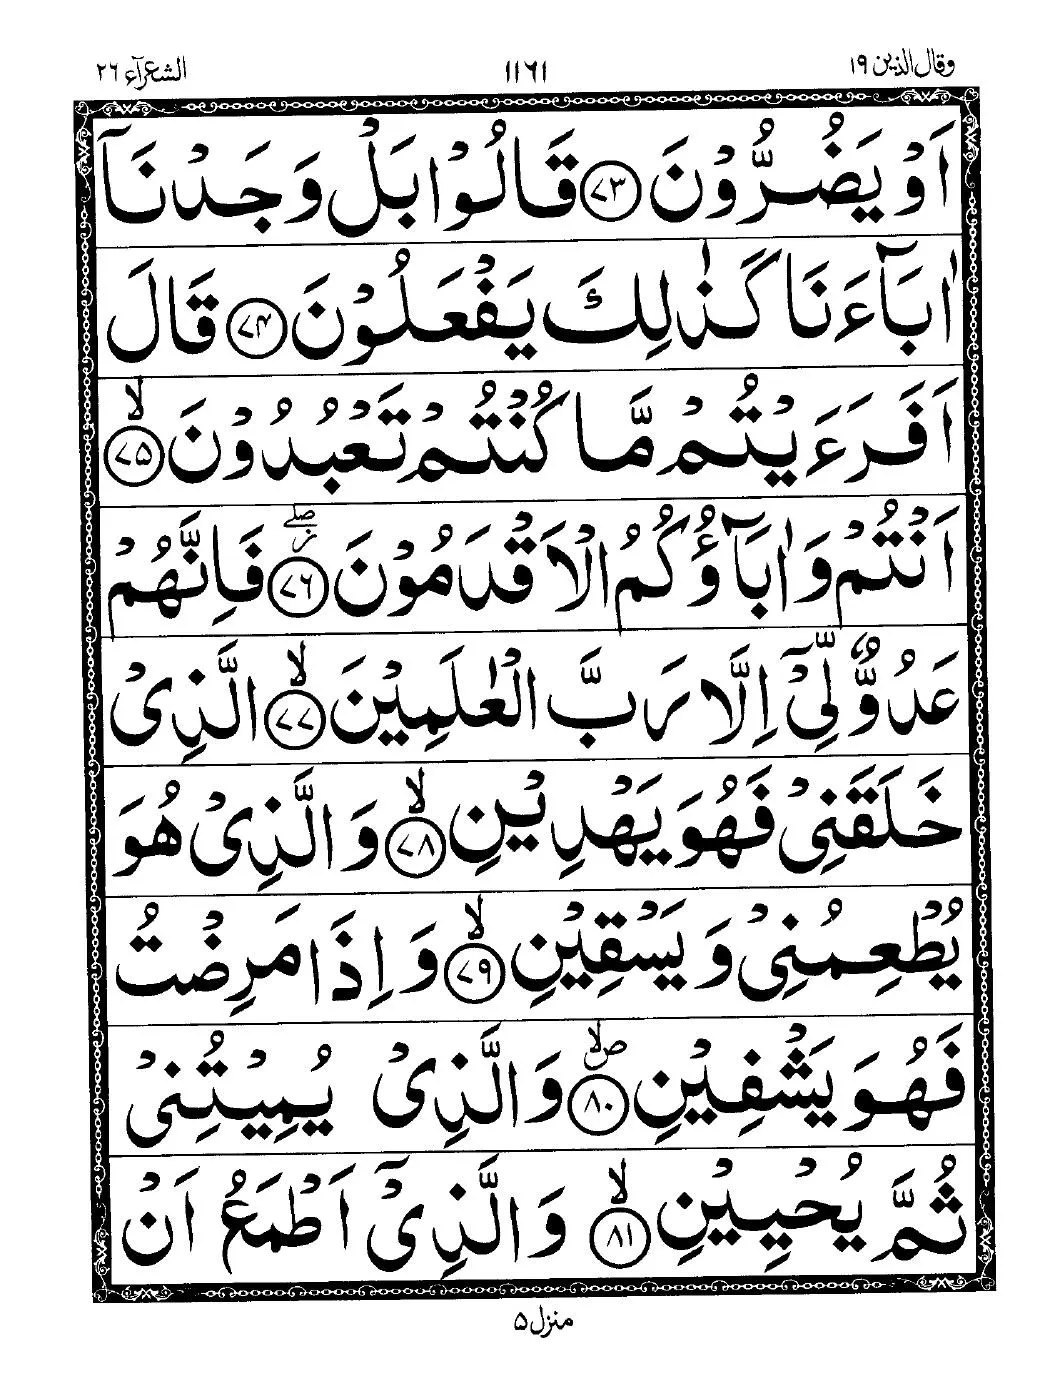 وقال الذين ١٩
١١٦١
الشعرآء ٢٦
اَوْ يَضُرُّوْنَ ﴿۷۳﴾ قَالُوْا بَلْ وَجَدْنَاۤ
اٰبَآءَنَا كَذٰلِكَ يَفْعَلُوْنَ ﴿۷۴﴾ قَالَ
اَفَرَءَيْتُمْ مَّا كُنْتُمْ تَعْبُدُوْنَ ﴿۷۵﴾ۙ
اَنْتُمْ وَاٰبَآؤُكُمُ الْاَقْدَمُوْنَ ﴿۷۶﴾ۖز فَاِنَّهُمْ
عَدُوٌّ لِّيْۤ اِلَّا رَبَّ الْعٰلَمِيْنَ ﴿۷۷﴾ۙ الَّذِيْ
خَلَقَنِيْ فَهُوَ يَهْدِيْنِ ﴿۷۸﴾ۙ وَالَّذِيْ هُوَ
يُطْعِمُنِيْ وَيَسْقِيْنِ ﴿۷۹﴾ۙ وَاِذَا مَرِضْتُ
فَهُوَ يَشْفِيْنِ ﴿۸۰﴾ص ۙ وَالَّذِيْ يُمِيْتُنِيْ
ثُمَّ يُحْيِيْنِ ﴿۸۱﴾ۙ وَالَّذِيْۤ اَطْمَعُ اَنْ
منزل ۵